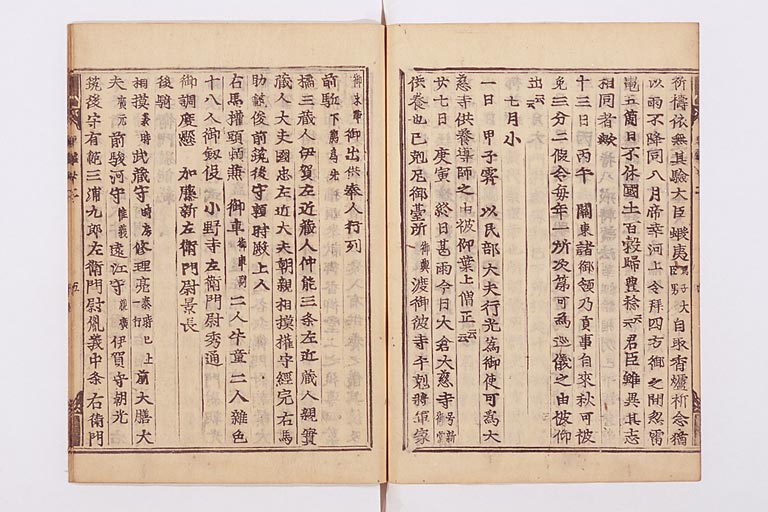 祈禱依無其驗大臣蝦夷馬子大臣男自取香爐祈念猶
以雨不降同八月帝幸河上令拜四方御之間忽雷
電五箇日不休國土百穀歸豊稔云云君臣雖異其志
相同者歟
十三日 丙午 關東諸御領乃貢事自來秋可被
免三分二假令毎年一所次第可爲巡儀之由被仰
出云云
七月小
一日 甲子霽 以民部大夫行光爲御使可爲大
慈寺供養導師之由被仰葉上僧正云云
廿七日 庚寅 終日甚雨今日大倉大慈寺号新御堂
供養也巳剋尼御臺所御輿渡御彼寺午剋將軍家
御束帶御出供奉人行列
前駈下﨟爲先
橘三藏人 伊賀左近藏人仲能 三条左近藏人親實
藏人大夫國忠 左近大夫朝親 相摸權守經定 右馬
助範俊 前筑後守頼時 殿上人
右馬權頭頼茂 御車檳榔二人牛童二人雜色
十八人 御釼役 小野寺左衛門尉秀通
御調度懸 加藤新左衛門尉景長
後騎
相摸守義時 武藏守時房 修理亮泰時已上一行 前大膳大
夫廣元 前駿河守惟義 遠江守親廣 伊賀守朝光
筑後守有範 三浦九郎左衛門尉胤義 中条右衛門